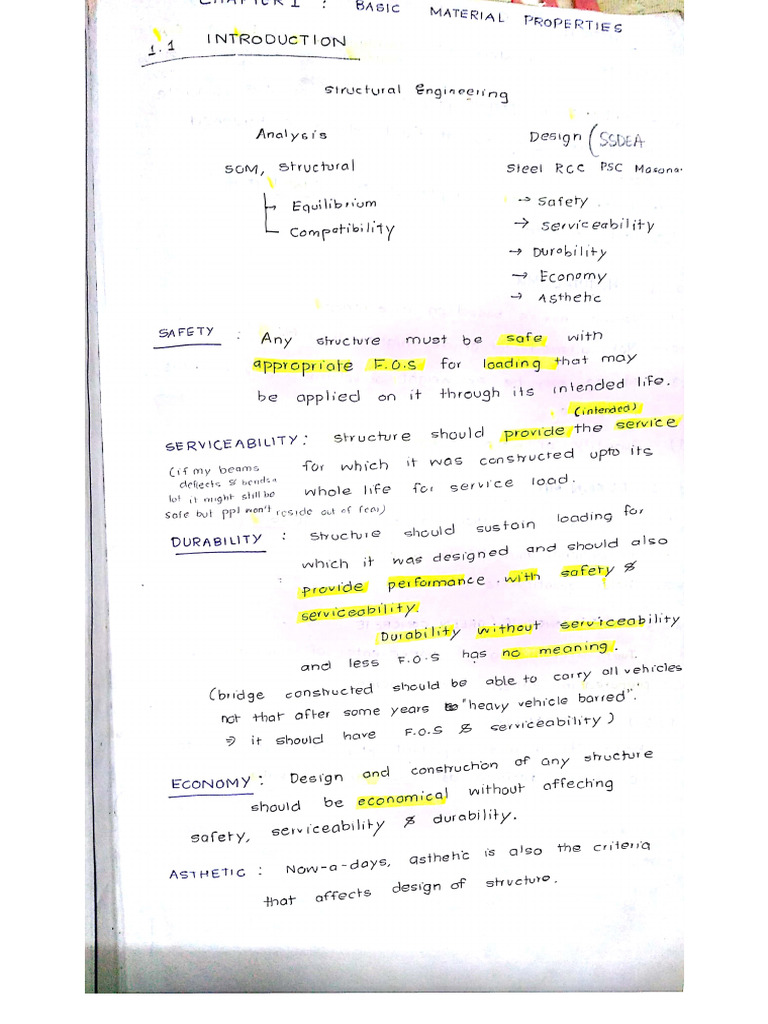 CHAPTER 1 : BASIC MATERIAL PROPERTIES
1.1 INTRODUCTION
Structural Engineering
Analysis Design (SSDEA
SOM, Structural Steel RCC PSC Masona
→ Equilibrium → Safety
→ Compatibility → Serviceability
→ Durability
→ Economy
→ Asthetic
SAFETY : Any structure must be safe with
appropriate F.O.S for loading that may
be applied on it through its intended life.
(intended)
SERVICEABILITY : Structure should provide the service
(if my beams for which it was constructed upto its
deflects & bends a
lot it might still be whole life for service load.
safe but ppl won't reside out of fear)
DURABILITY : Structure should sustain loading for
which it was designed and should also
provide performance with safety &
serviceability.
Durability without serviceability
and less F.O.S has no meaning.
(bridge constructed should be able to carry all vehicles
not that after some years "heavy vehicle barred".
⇒ it should have F.O.S & serviceability)
ECONOMY : Design and construction of any structure
should be economical without affecting
safety, serviceability & durability.
ASTHETIC : Now-a-days, asthetic is also the criteria
that affects design of structure.